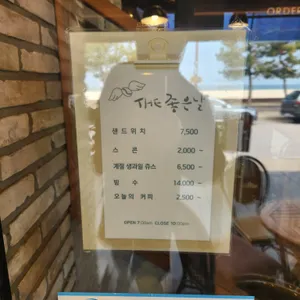 ORDER
THE 좋은날
샌드위치 7,500
스콘 2,000 ~
계절 생과일 쥬스 6,500 ~
빙수 14,000 ~
오늘의 커피 2,500 ~
OPEN 7:00am CLOSE 10:00pm